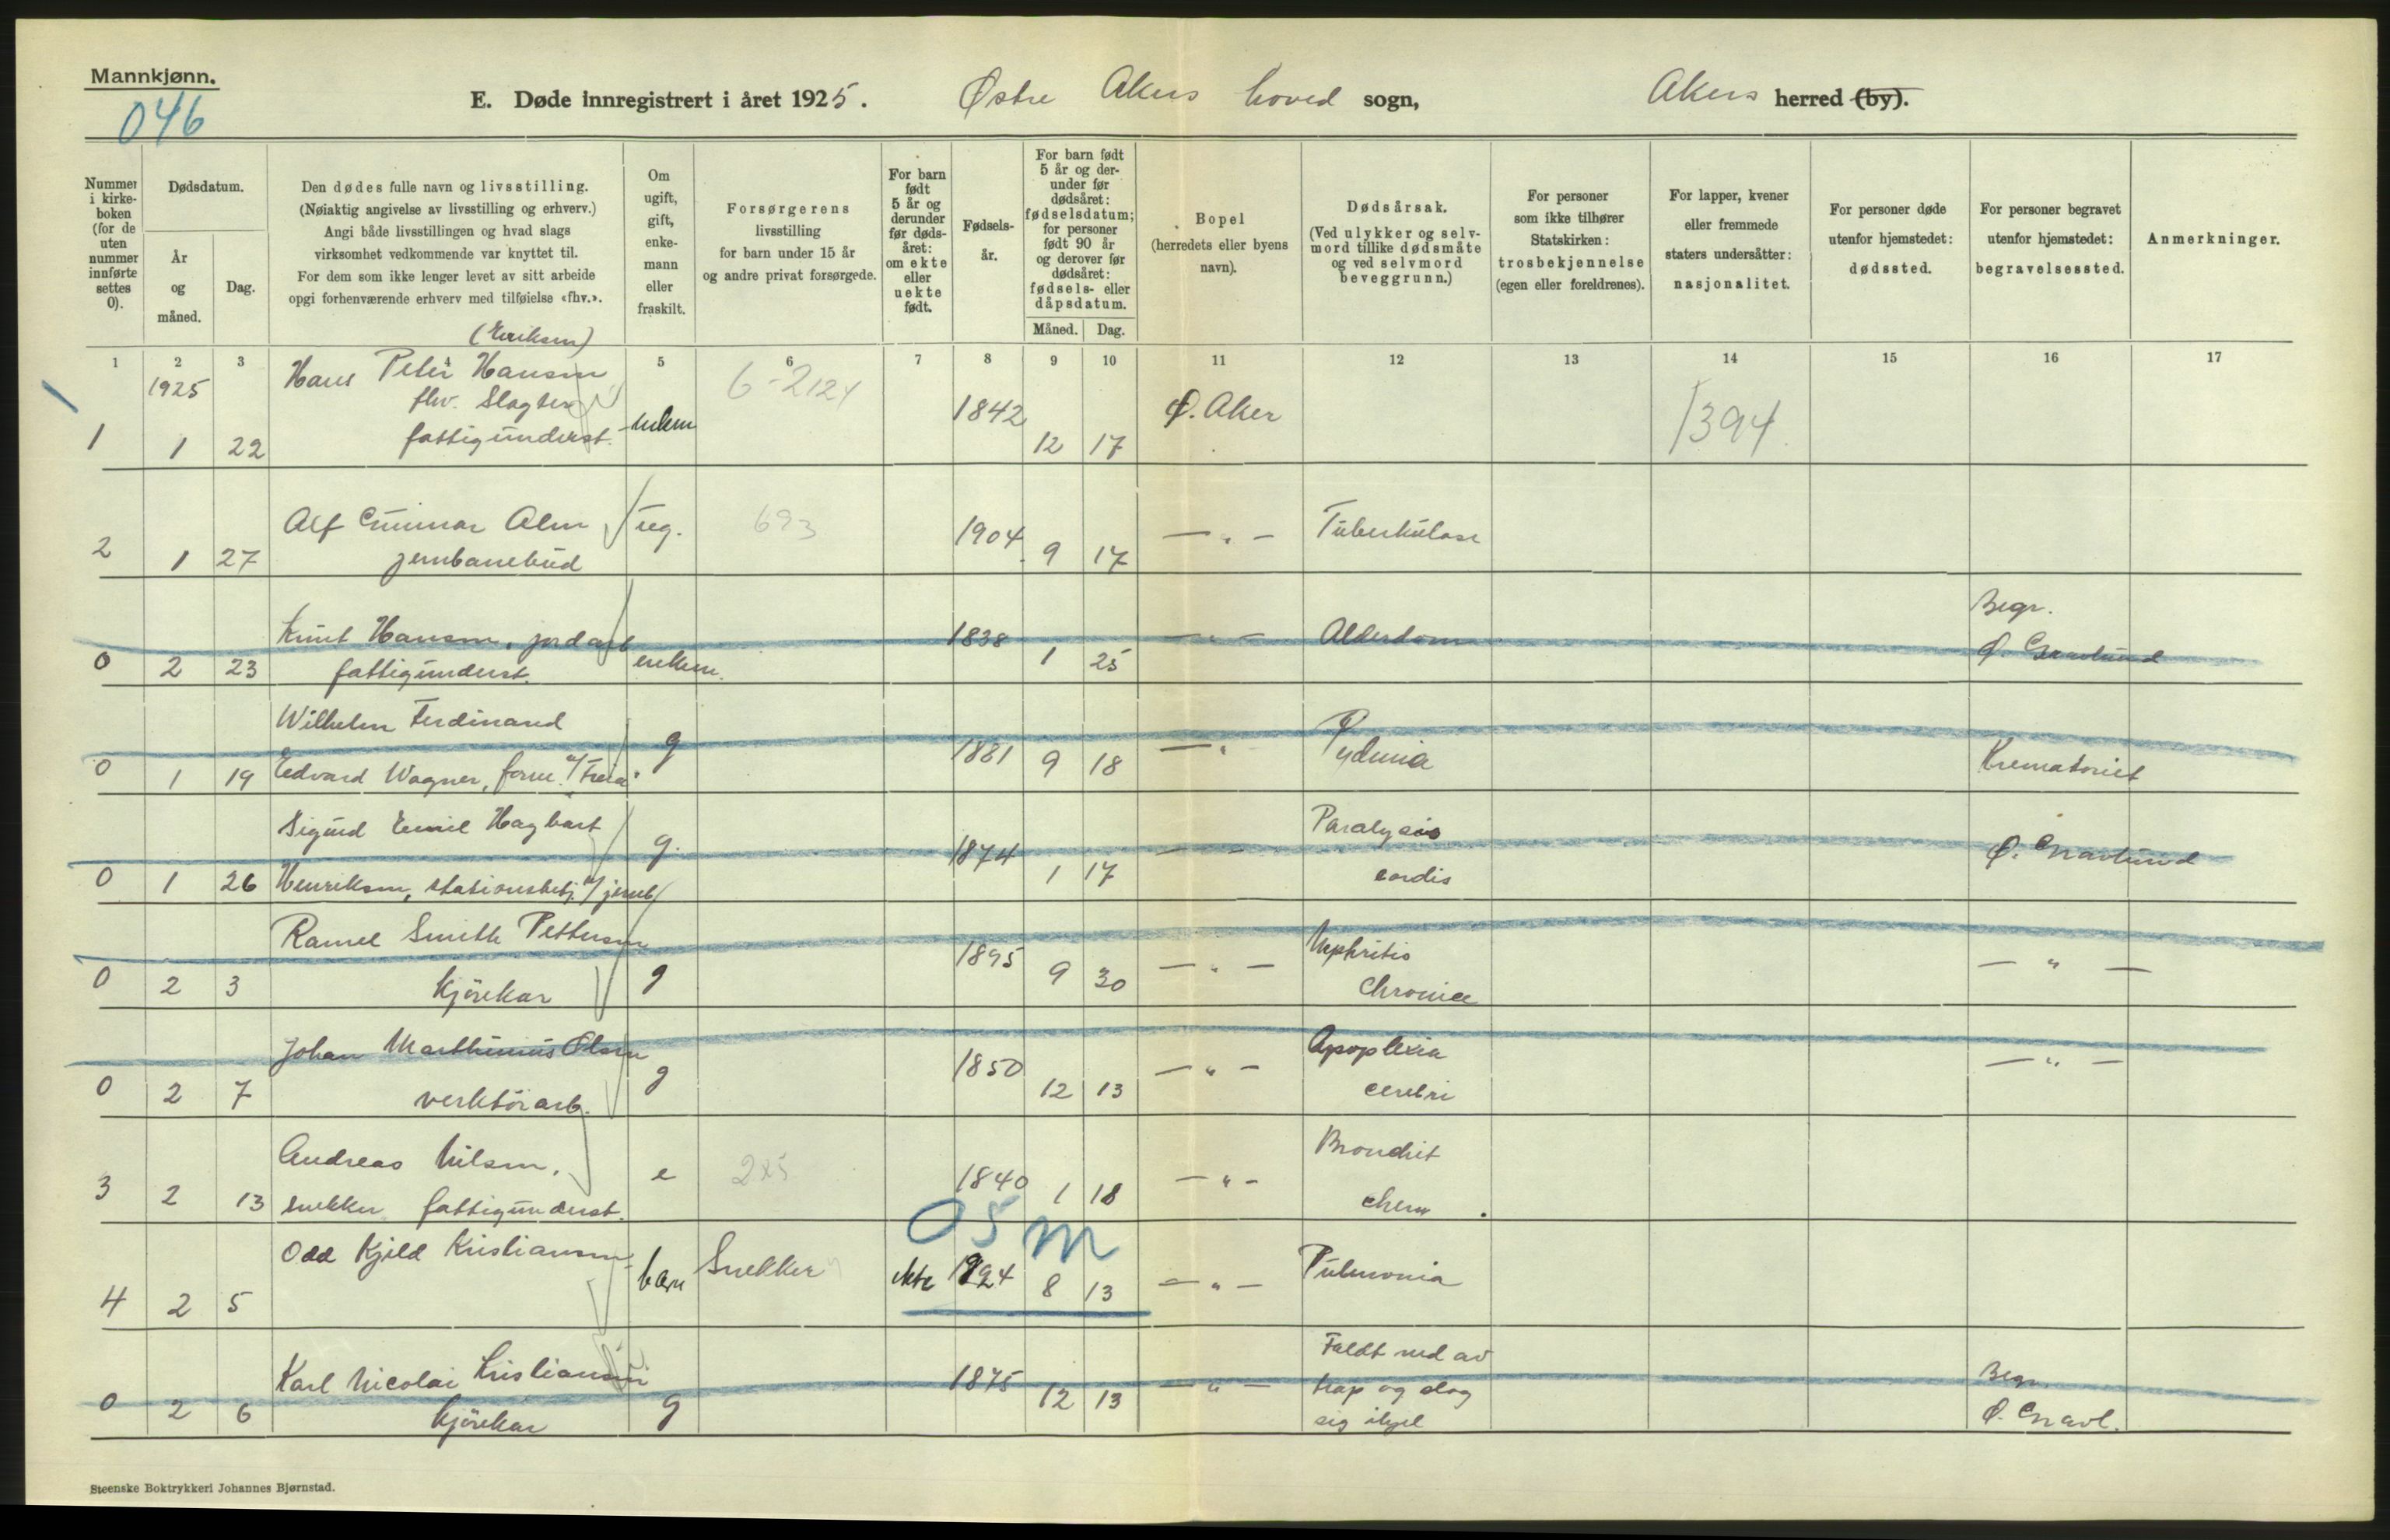 Mannkjønn.
046
E. Døde innregistrert i året 1925. Østre Akers hoved sogn, Akers herred (by).
Nummer i kirke-boken (for de uten nummer innførte settes 0).
Dødsdatum.
År og måned.
Dag.
Den dødes fulle navn og livsstilling.
(Nøiaktig angivelse av livsstilling og erhverv.)
Angi både livsstillingen og hvad slags
virksomhet vedkommende var knyttet til.
For dem som ikke lenger levet av sitt arbeide
opgi forhenværende erhverv med tilføielse «fhv.».
Om ugift, gift, enke-mann eller fraskilt.
Forsørgerens
livsstilling
for barn under 15 år
og andre privat forsørgede.
For barn født 5 år og derunder før døds-året: om ekte eller uekte født.
Fødsels-år.
For barn født 5 år og der-under før dødsåret: fødselsdatum; for personer født 90 år og derover før dødsåret: fødsels- eller dåpsdatum.
Måned. Dag.
Bopel
(herredets eller byens navn).
Dødsårsak.
(Ved ulykker og selv-mord tillike dødsmåte og ved selvmord beveggrunn.)
For personer som ikke tilhører Statskirken: trosbekjennelse (egen eller foreldrenes).
For lapper, kvener eller fremmede staters undersåtter: nasjonalitet.
For personer døde utenfor hjemstedet: dødssted.
For personer begravet utenfor hjemstedet: begravelsessted.
Anmerkninger.
1 2 3 4 5 6 7 8 9 10 11 12 13 14 15 16 17
(Eriksen)
1925 Hans Peter Hansen 6-2124
fhv. Slagter 1842 Ø. Aker 1394
1 1 22 fattigunderst. enkem 12 17
Alf Gunnar Alm ug. 693 1904 — " — Tuberkulose
2 1 27 jernbanebud 9 17
Begr.
Knut Hansen, jordarb 1838 — " — Alderdom Ø. Gravlund
0 2 23 fattigunderst. enkem. 1 25
Wilhelm Ferdinand
0 1 19 Edvard Wagner, g 1881 9 18 — " Krematoriet
Sigurd Emil Hagbart g. 1874 — " — Paralysis Ø. Gravlund
0 1 26 Henriksen, stationsbetj. v/ jernb 1 17 cordis
Ramel Smith Pettersen 1895 — " — Nephritis — " —
0 2 3 kjørekar g 9 30 Chronica
Johan Marthinius Olsen 1850 — " — Apoplexia — " —
0 2 7 verktøiarb. g 12 13 cerebri
Andreas Nilsen, e 225 1840 — " — Bronchit
3 2 13 snekker fattigunderst. 1 18 chron.
05 m
Odd Kjeld Kristiansen barn Snekker ekte 1924 — " — Pulmonia
4 2 5 8 13
Faldt ned av
Karl Nicolai Kristiansen 1875 — " — trap og slog Begr.
0 2 6 kjørekar g 12 13 sig ihjel Ø. Gravl.
Steenske Boktrykkeri Johannes Bjørnstad.